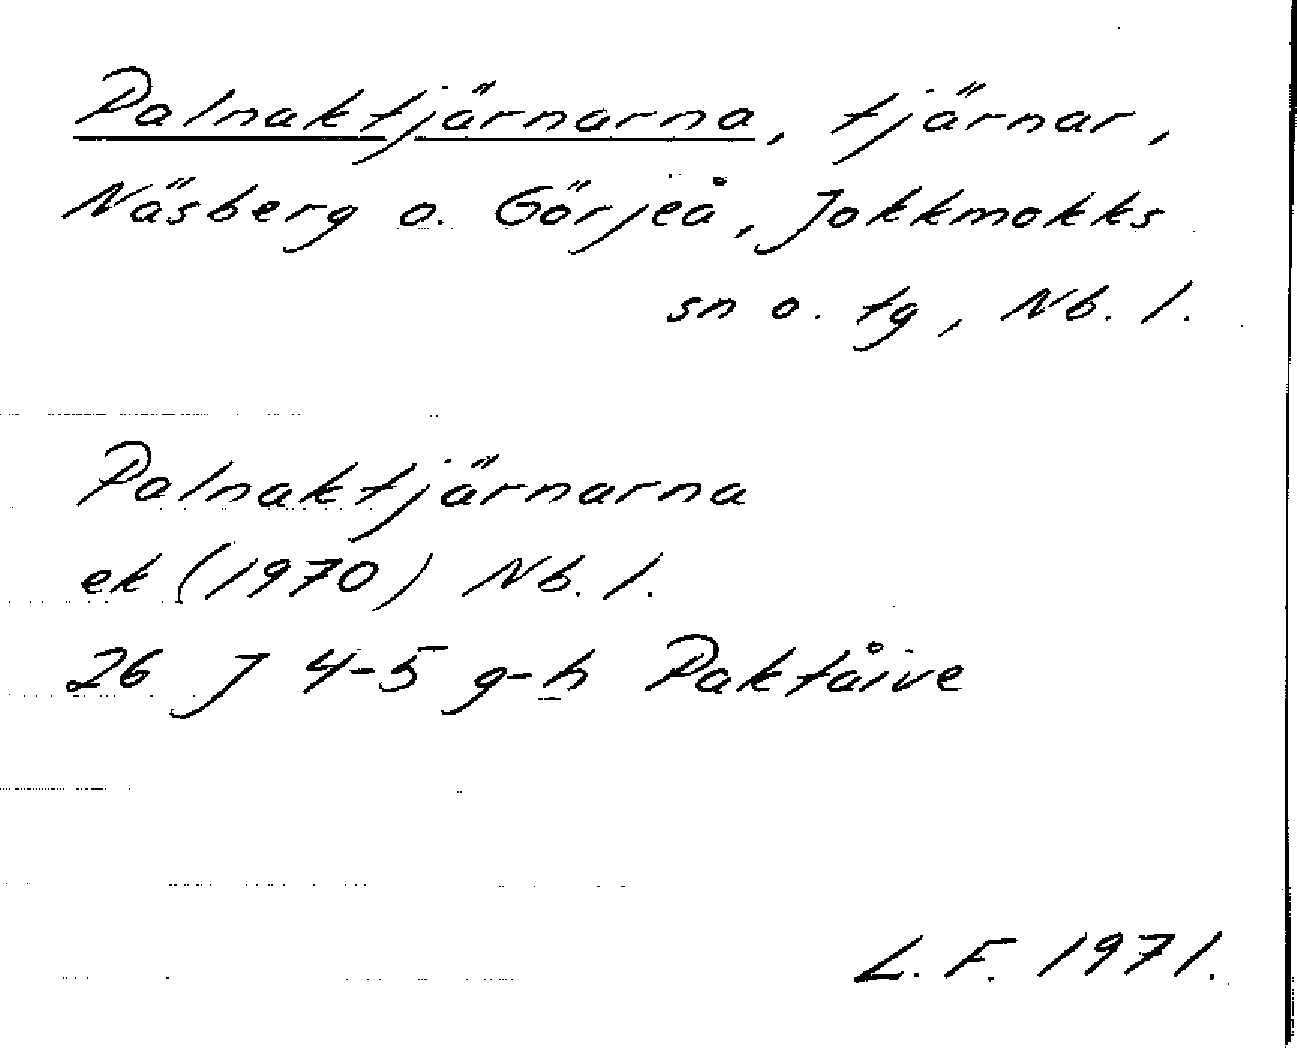 Palnaktjärnarna, tjärnar,
Näsberg o. Görjeå, Jokkmokks
sn o. tg, Nb. l.
Palnaktjärnarna
ek (1970) Nb. l.
26 J 4-5 g-h Paktåive
L. F. 1971.